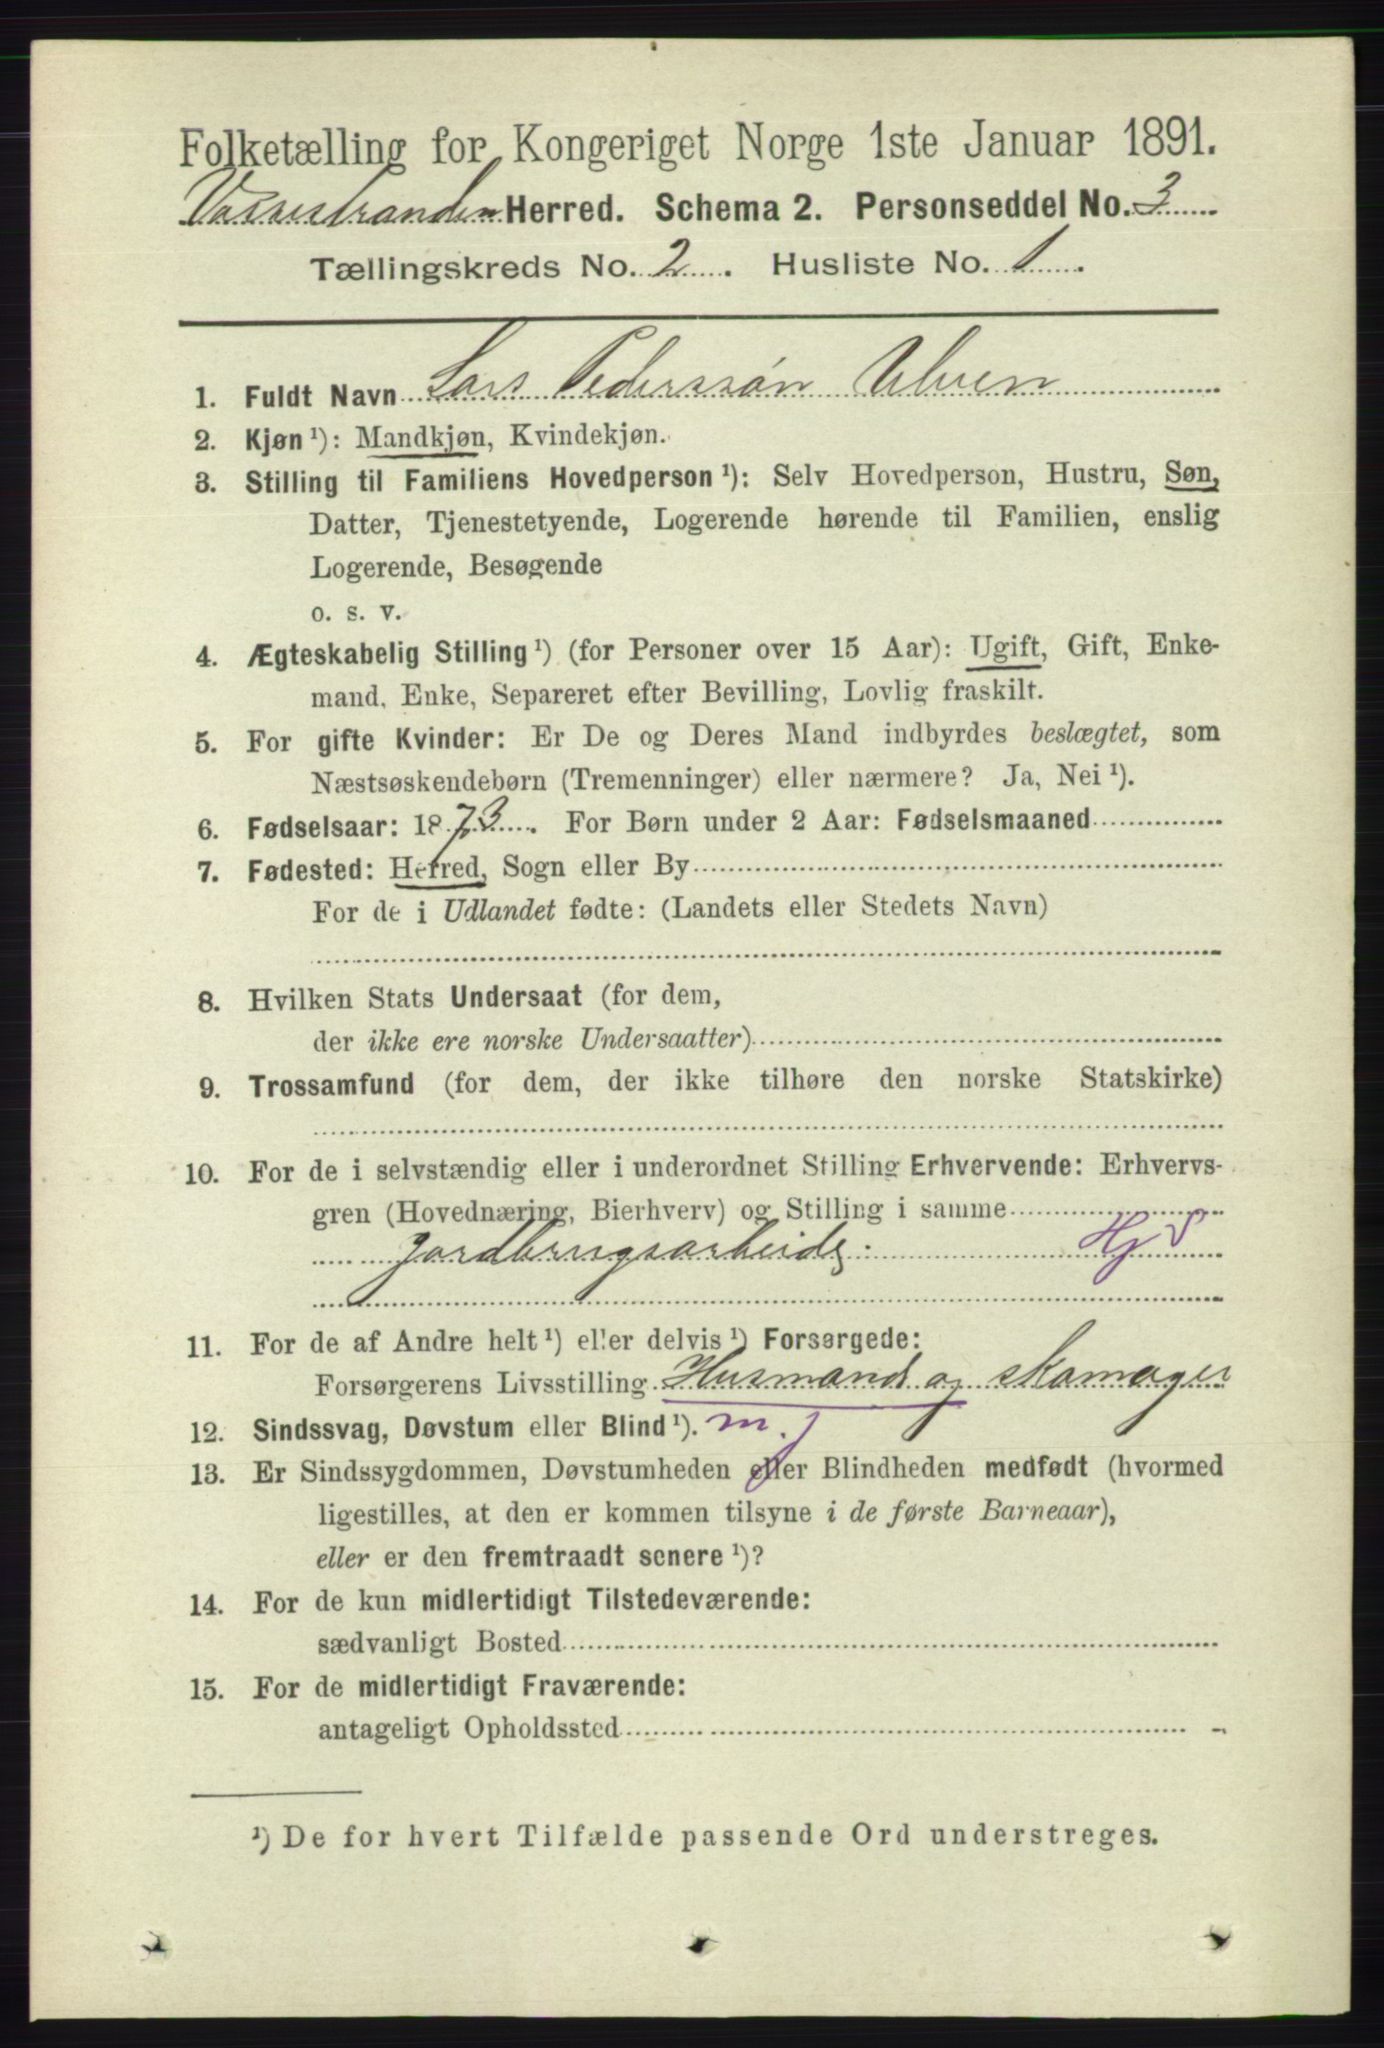 Folketælling for Kongeriget Norge 1ste Januar 1891.
Vossestranden Herred. Schema 2. Personseddel No. 3
Tællingskreds No. 2. Husliste No. 1.
1. Fuldt Navn Lars Pederssøn Ulven
2. Kjøn ¹): Mandkjøn, Kvindekjøn.
3. Stilling til Familiens Hovedperson ¹): Selv Hovedperson, Hustru, Søn,
Datter, Tjenestetyende, Logerende hørende til Familien, enslig
Logerende, Besøgende
o. s. v.
4. Ægteskabelig Stilling ¹) (for Personer over 15 Aar): Ugift, Gift, Enke-
mand, Enke, Separeret efter Bevilling, Lovlig fraskilt.
5. For gifte Kvinder: Er De og Deres Mand indbyrdes beslægtet, som
Næstsøskendebørn (Tremenninger) eller nærmere? Ja, Nei ¹).
6. Fødselsaar: 1873. For Børn under 2 Aar: Fødselsmaaned
7. Fødested: Herred, Sogn eller By
For de i Udlandet fødte: (Landets eller Stedets Navn)
8. Hvilken Stats Undersaat (for dem,
der ikke ere norske Undersaatter)
9. Trossamfund (for dem, der ikke tilhøre den norske Statskirke)
10. For de i selvstændig eller i underordnet Stilling Erhvervende: Erhvervs-
gren (Hovednæring, Bierhverv) og Stilling i samme
Jordbrugsarbeide. Hj S
11. For de af Andre helt ¹) eller delvis ¹) Forsørgede:
Forsørgerens Livsstilling Husmand og skomager
12. Sindssvag, Døvstum eller Blind ¹). m. j
13. Er Sindssygdommen, Døvstumheden eller Blindheden medfødt (hvormed
ligestilles, at den er kommen tilsyne i de første Barneaar),
eller er den fremtraadt senere ¹)?
14. For de kun midlertidigt Tilstedeværende:
sædvanligt Bosted
15. For de midlertidigt Fraværende:
antageligt Opholdssted
¹) De for hvert Tilfælde passende Ord understreges.